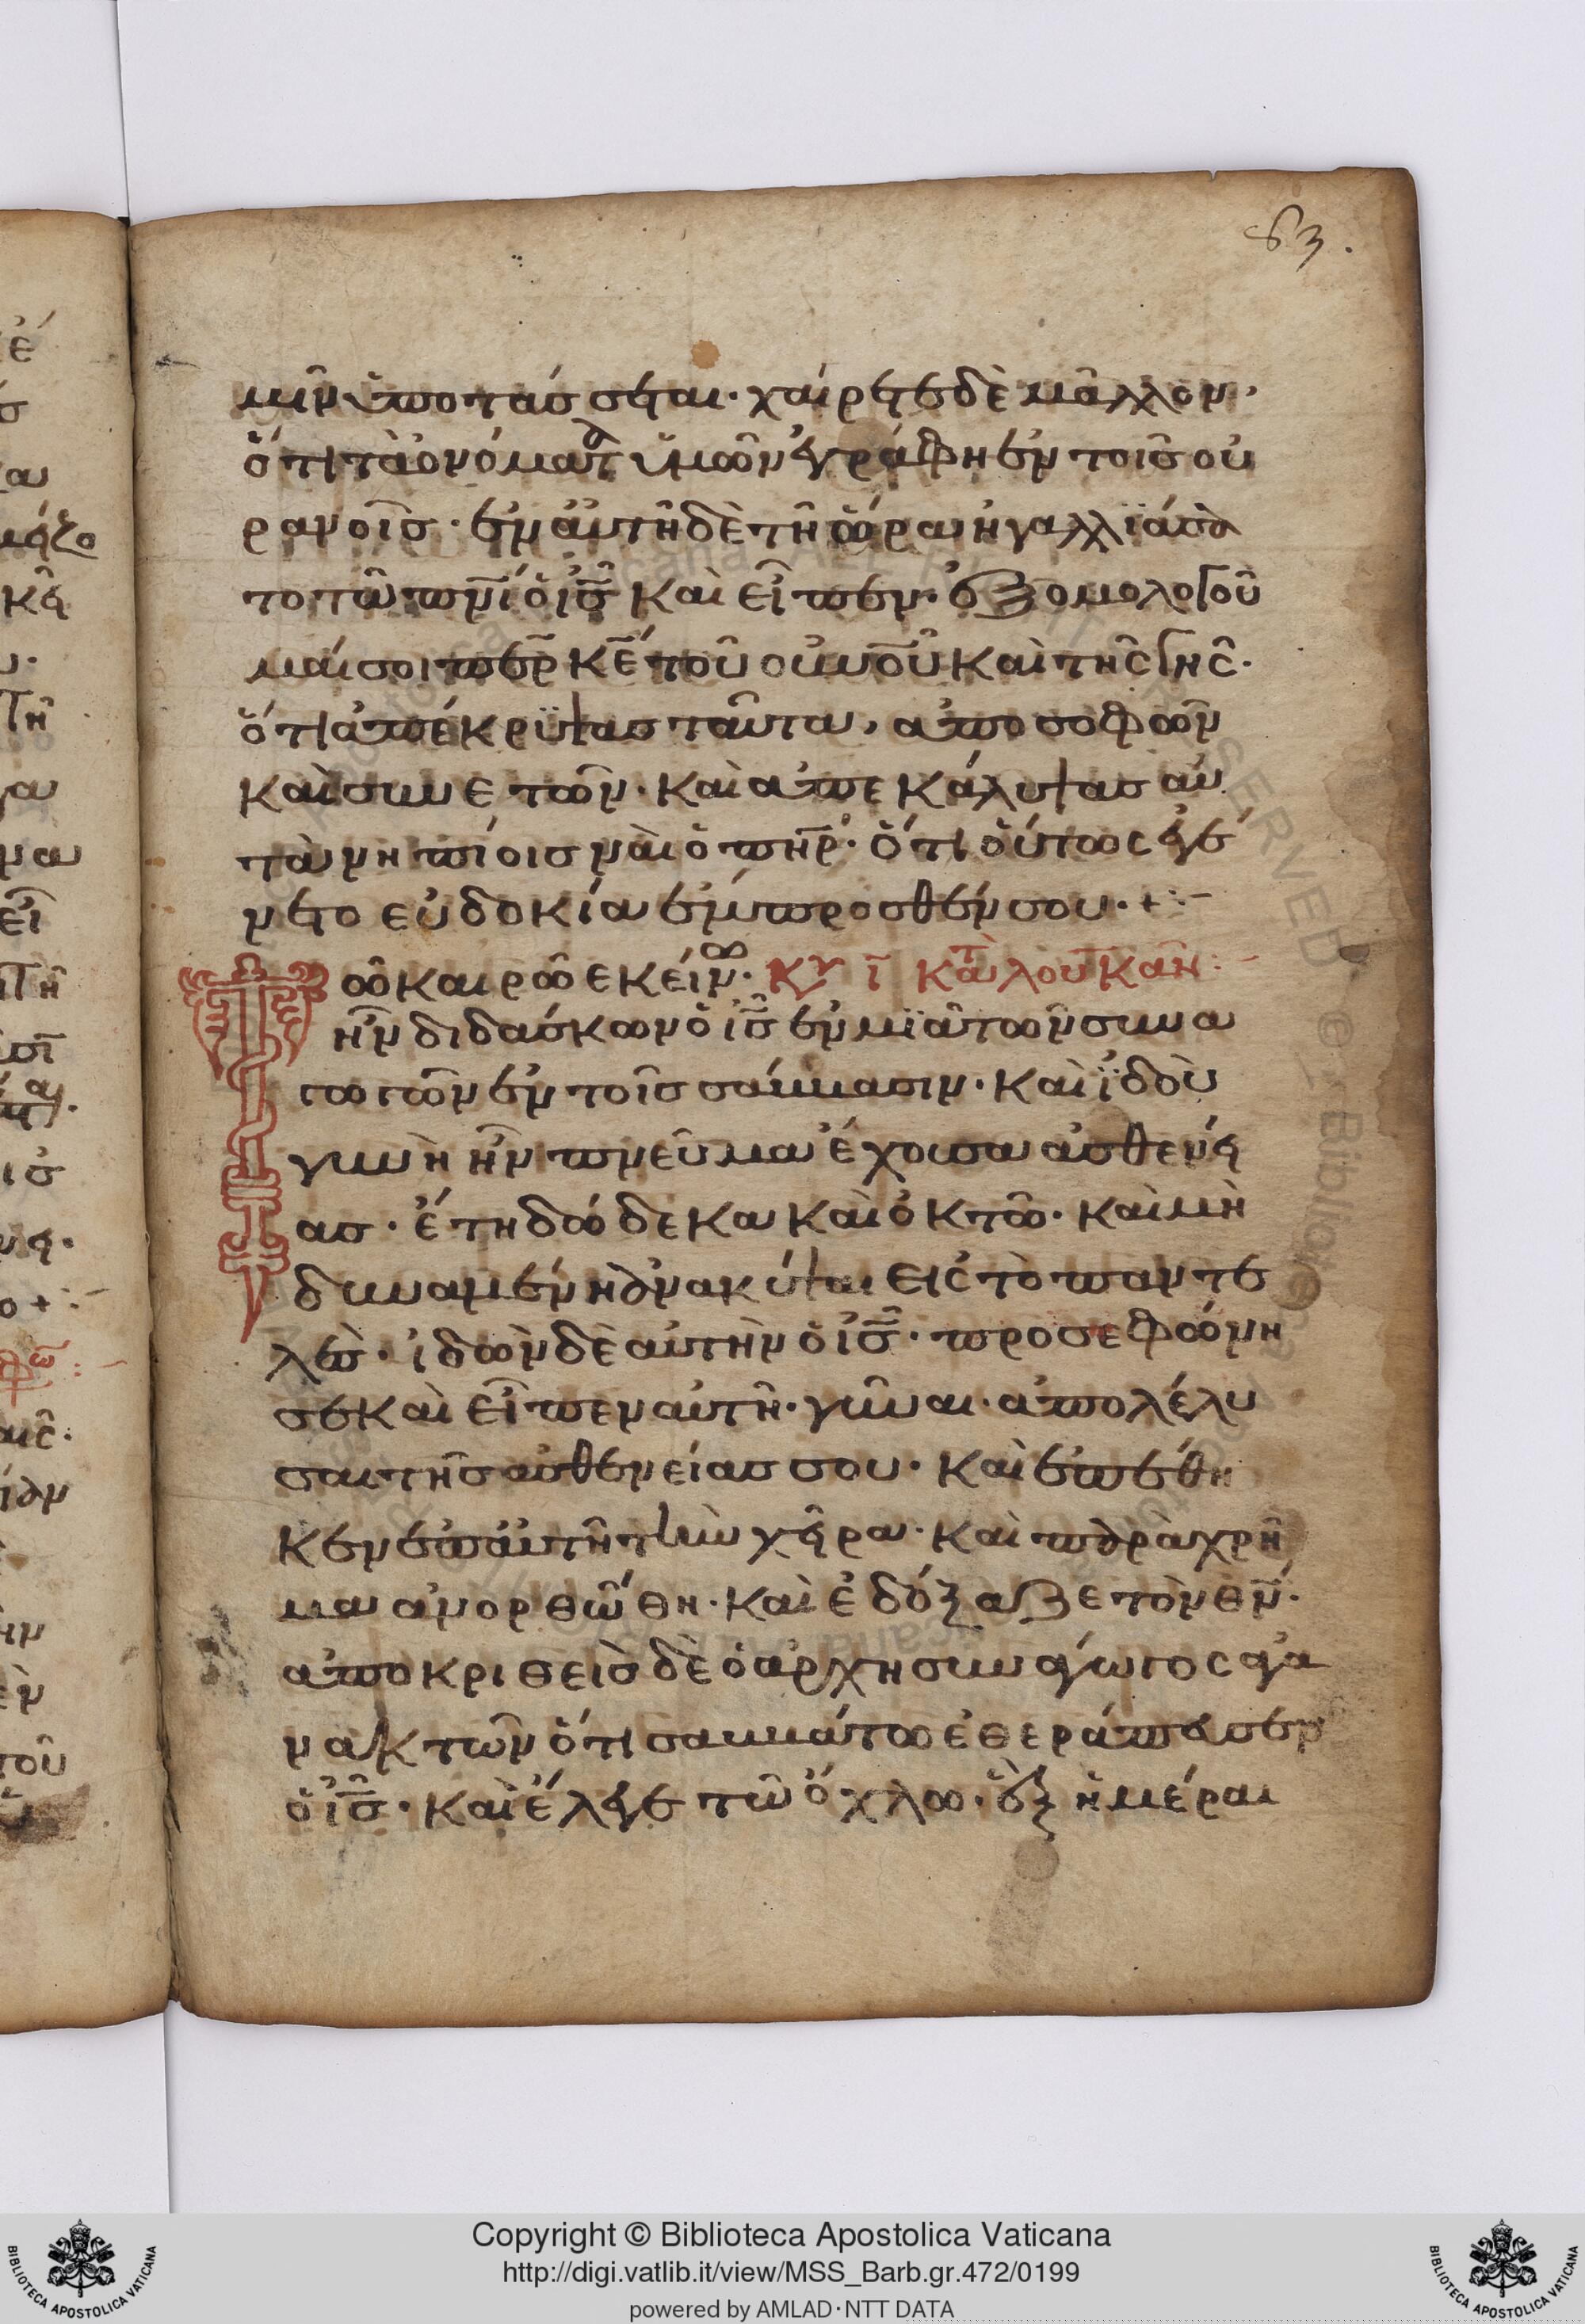 83.
μῖν ὑποτάσσεται· χαίρετε δὲ μᾶλλον,
ὅτι τὰ ὀνόματα ὑμῶν ἐγράφη ἐν τοῖς οὐ
ρανοῖς· ἐν αὐτῆ δὲ τῆ ὥρα ἠγαλλϊάσα
το τῶ πνι ὁ ις καὶ εἶπεν· ἐξομολογοῦ
μαί σοι περ κε τοῦ ουνου καὶ τῆς γῆς·
ὅτι ἀπέκρϋψας ταῦτα, ἀπο σοφῶν
καὶ συνετῶν· καὶ ἀπεκάλυψας αὐ
τὰ νηπίοις ναὶ ὁ πηρ· ὅτι οὕτως ἐγέ
νετο εὐδοκία ἔμπροσθέν σου· +
Τῶ καιρῶ ἐκείνω· Κυ ι κατὰ λουκαν
ἦν διδάσκων ὁ ις ἐν μϊᾶ τῶν συνα
γωγῶν ἐν τοῖς σάββασιν· καὶ ϊδοὺ
γυνὴ ἦν πνεῦμα ἔχουσα ἀσθενεί
ας· ἔτη δώδεκα καὶ ὀκτῶ· καὶ μὴ
δυναμένη ἀνακύψαι εἰς τὸ παντε
λές· ἰδὼν δὲ αὐτὴν ὁ ις· προσεφώνη
σε καὶ εἶπεν αὐτῆ· γύναι· ἀπολέλυ
σαι τῆς ἀσθενείας σου· καὶ ἐπέθη
κεν ἐπ αὐτῆ τὴν χεῖρα· καὶ παρὰχρῆ
μα ἀνορθώθη· καὶ ἐδόξαζε τὸν θν·
ἀποκριθεὶς δὲ ὁ ἀρχησυνάγωγος ἀγα
νακτῶν ὅτι σαββάτω ἐθεράπευσεν
ὁ ις· καὶ ἔλεγε τῶ ὄχλω· ἓξ ἡμέραι
Copyright © Biblioteca Apostolica Vaticana
http://digi.vatlib.it/view/MSS_Barb.gr.472/0199
powered by AMLAD·NTT DATA
BIBLIOTECA APOSTOLICA VATICANA
BIBLIOTECA APOSTOLICA VATICANA